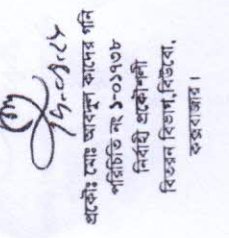 প্রকৌঃ মোঃ আবদুল কাদের গনি
পরিচিতি নং ১-০১৭৩৮
নির্বাহী প্রকৌশলী
বিতরন বিভাগ,বিউবো,
কক্সবাজার।